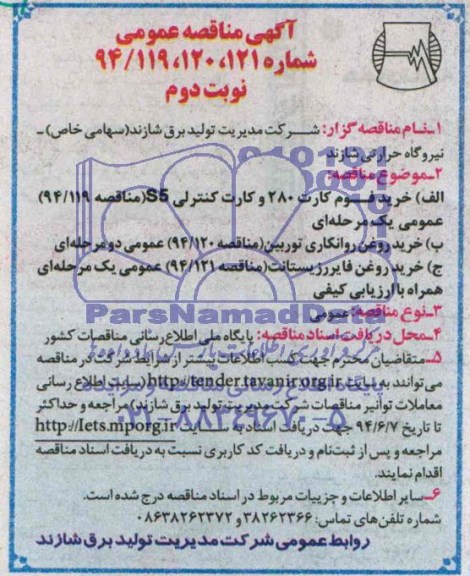 آگهی مناقصه عمومی
شماره ۱۲۱، ۱۲۰، ۹۴/۱۱۹
نوبت دوم
۱ـ نام مناقصه گزار: شـرکت مدیریت تولید برق شازند(سهامی خاص) ـ
نیروگاه حرارتی شازند
۲ـ موضوع مناقصه:
الف) خرید فـوم کارت ۲۸۰ و کارت کنترلی S5(مناقصه ۹۴/۱۱۹)
عمومی یک مرحله‌ای
ب) خرید روغن روانکاری توربین(مناقصه ۹۴/۱۲۰) عمومی دومرحله‌ای
ج) خرید روغن فایررزیستانت(مناقصه ۹۴/۱۲۱) عمومی یک مرحله‌ای
همراه باارزیابی کیفی
۳ـ نوع مناقصه: عمومی
ParsNamadData
۴ـ محل دریافت اسناد مناقصه: پایگاه ملی اطلاع رسانی مناقصات کشور
۵ـ متقاضیان محترم جهت کسب اطلاعات بیشتر از شرایط شرکت در مناقصه
می‌توانند به سایت http://tender.tavanir.org.ir (سایت اطلاع رسانی
معاملات توانیر مناقصات شرکت مدیریت تولید برق شازند) مراجعه و حداکثر
تا تاریخ ۹۴/۶/۷ جهت دریافت اسناد به سـایت http://Iets.mporg.ir
مراجعه و پس از ثبت‌نام و دریافت کد کاربری نسبت به دریافت اسناد مناقصه
اقدام نمایند.
۶ـ سایر اطلاعات و جزییات مربوط در اسناد مناقصه درج شده است.
شماره تلفن‌های تماس: ۳۸۲۶۲۳۶۶ و ۰۸۶۳۸۲۶۲۳۷۲
روابط عمومی شرکت مدیریت تولید برق شازند